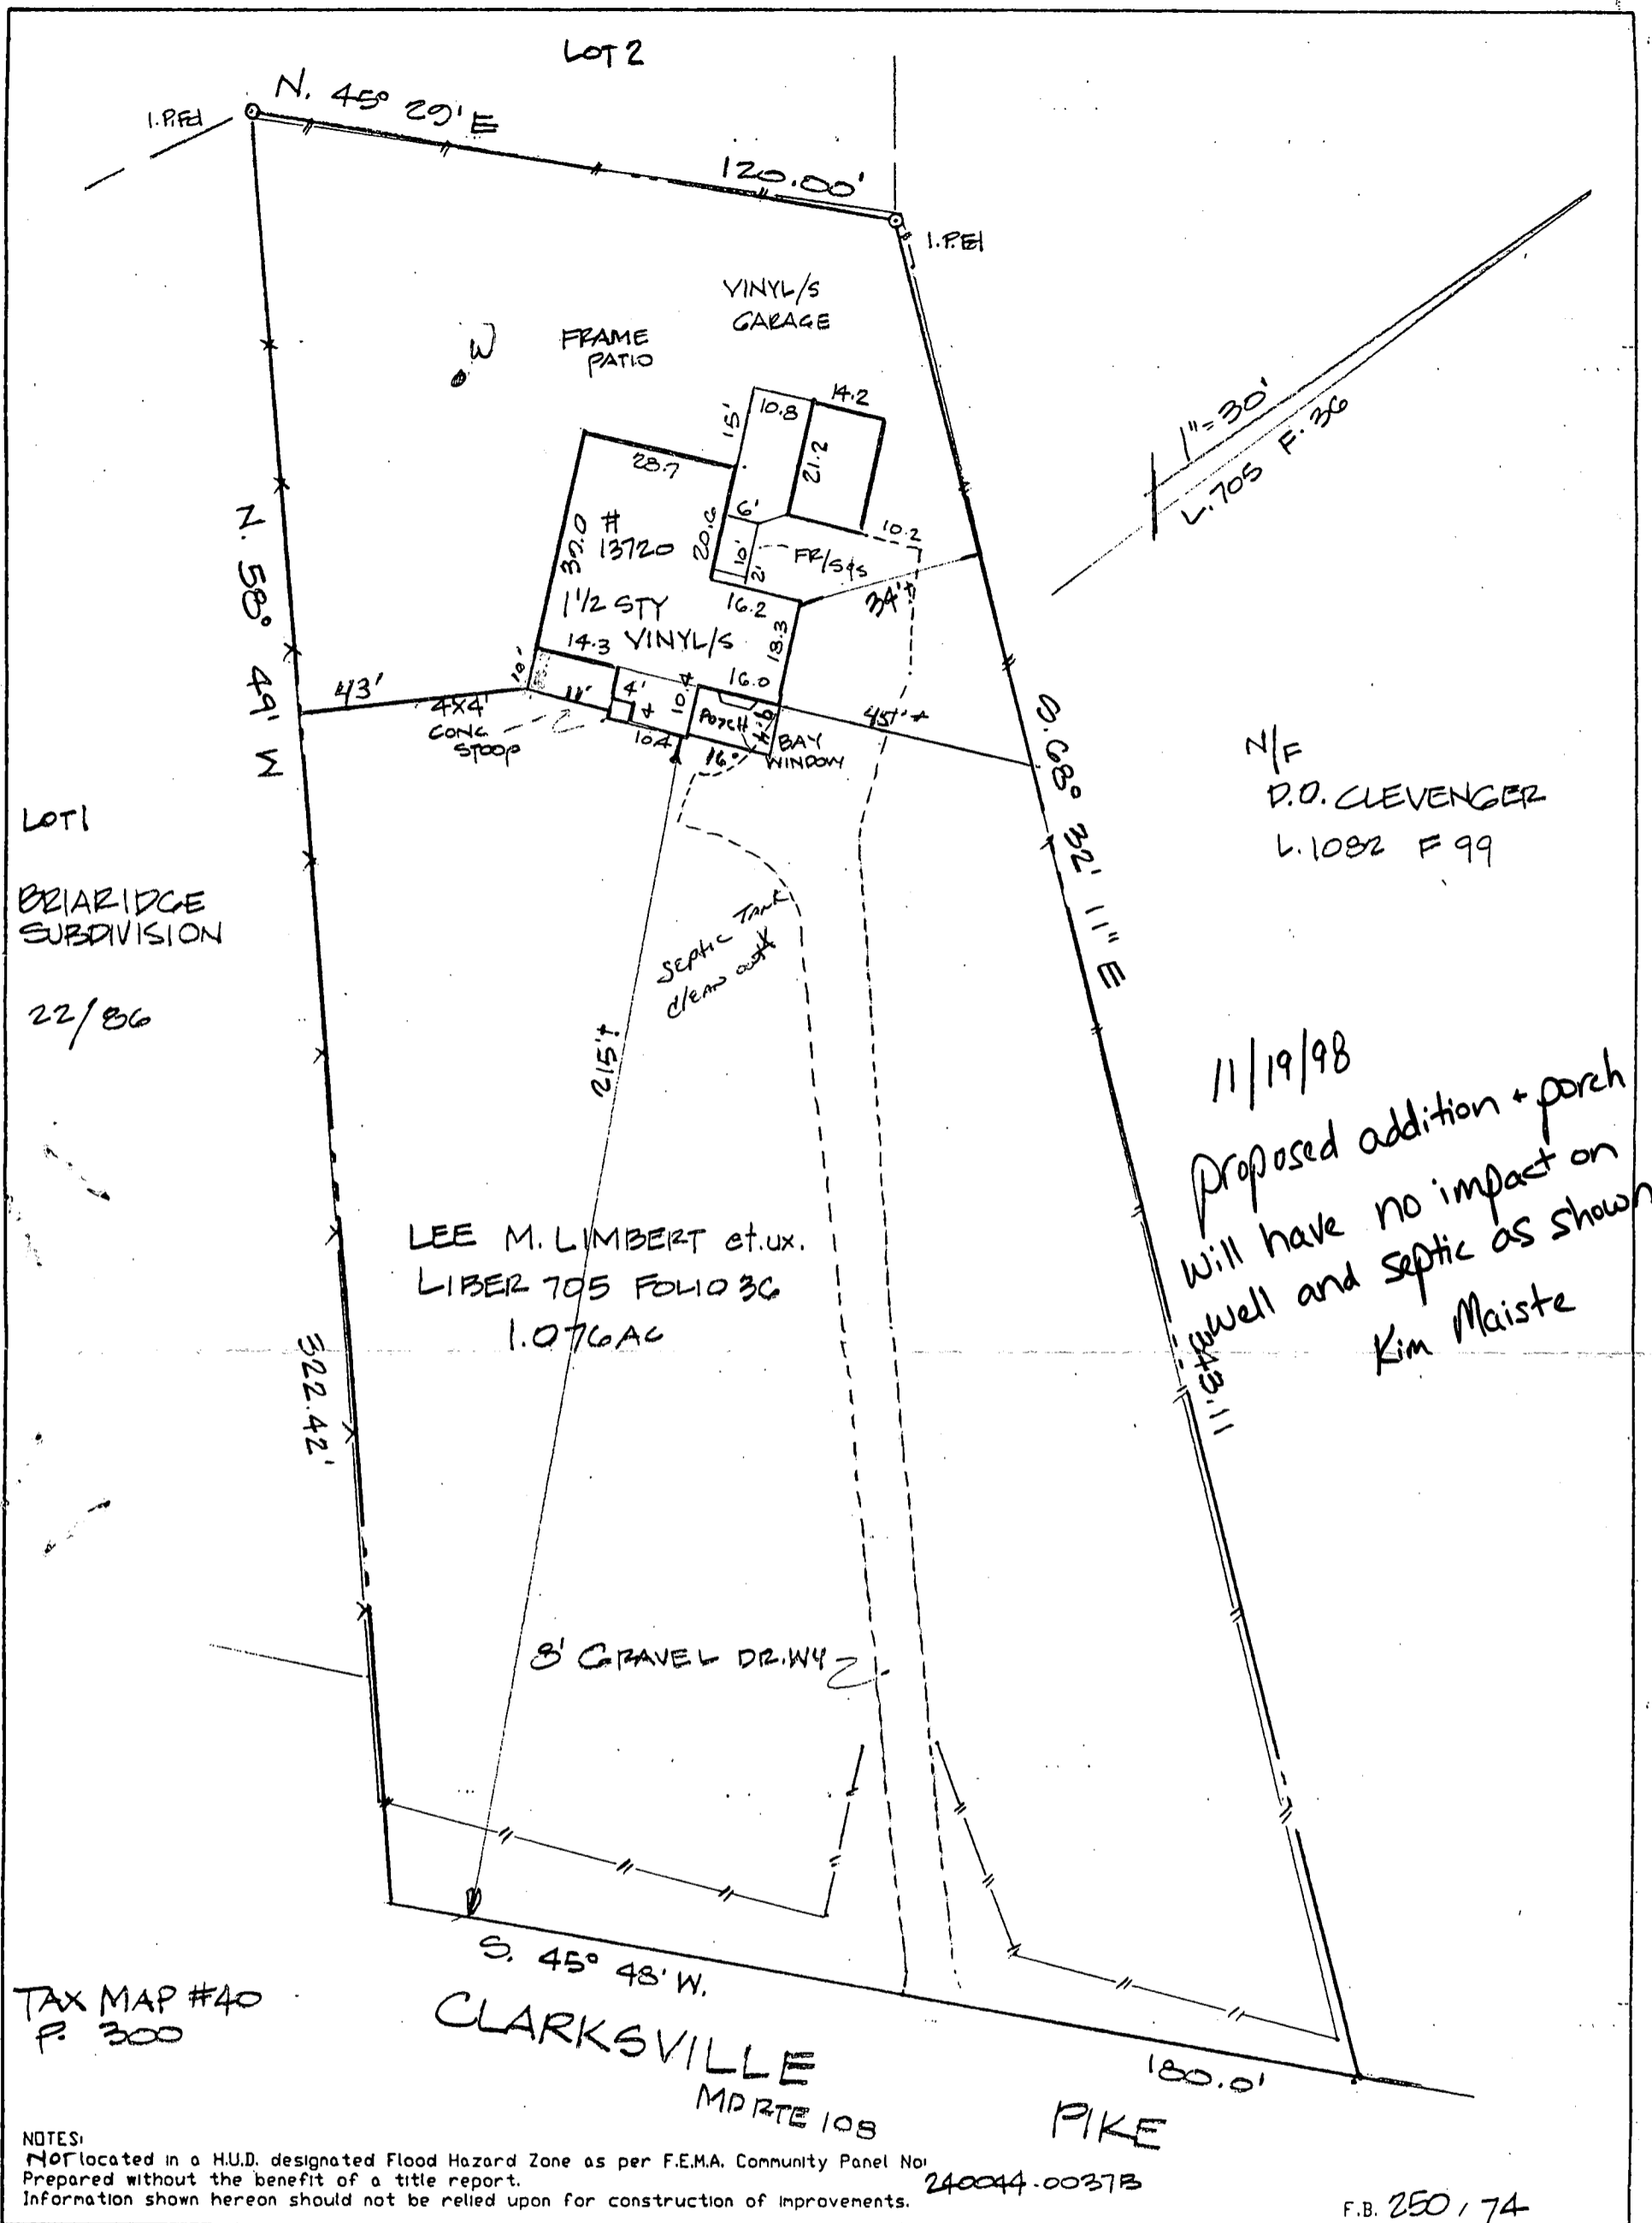 LOT 2
N. 45° 29' E
120.00'
I.P.Fd
I.P.Fd
VINYL/S
GARAGE
W
FRAME
PATIO
1"=30'
L.705 F.36
10.8
14.2
15'
21.2
28.7
#
13720
20.6
6'
10'
2'
10.2
FR/S&S
34'±
1 1/2 STY
VINYL/S
16.2
18.3
14.3
16.0
10'
11'
4'
4
10.4
PORCH
45'±
43'
4X4'
CONC
STOOP
10.4
16'
BAY
WINDOW
N. 58° 49' W
S. 68° 32' 11" E
N/F
D.O. CLEVENGER
L.1082 F 99
LOT 1
BRIARIDGE
SUBDIVISION
22/86
Septic Tank
clean out X
215'±
11/19/98
proposed addition + porch
will have no impact on
well and septic as shown
Kim Maiste
LEE M. LIMBERT et.ux.
LIBER 705 FOLIO 36
1.076 AC
322.42'
343.11
8' GRAVEL DR.WY
S. 45° 48' W.
180.0'
CLARKSVILLE
PIKE
MD RTE 108
TAX MAP #40
P. 300
NOTES:
NOT located in a H.U.D. designated Flood Hazard Zone as per F.E.M.A. Community Panel No:
240044.0037B
Prepared without the benefit of a title report.
Information shown hereon should not be relied upon for construction of improvements.
F.B. 250 / 74